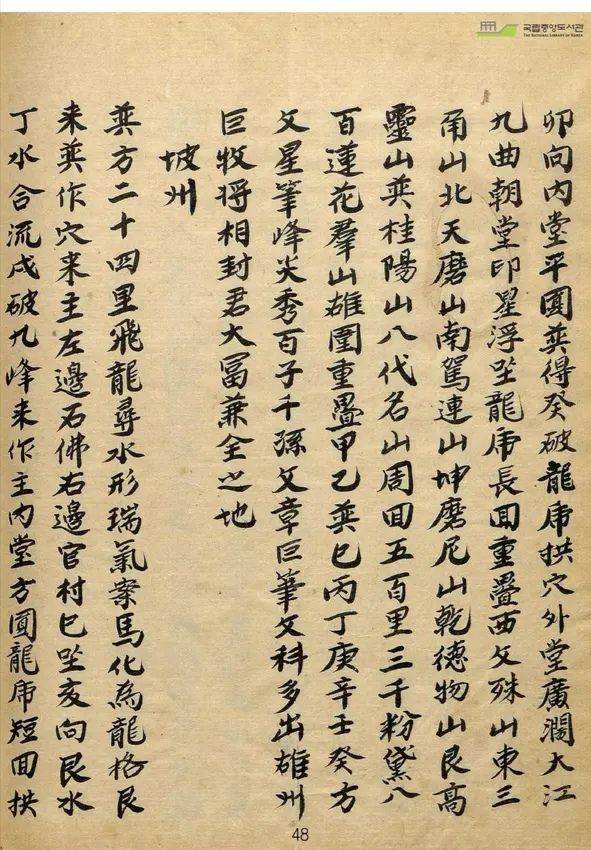 卯向內堂平圓巽得癸破龍虎拱穴外堂廣濶大江
九曲朝堂印星浮坐龍虎長回重疊西文殊山東三
角山北天磨山南駕連山坤磨尼山乾德物山艮高
靈山巽桂陽山八代名山周回五百里三千粉黛八
百蓮花羣山雄圍重疊甲乙巽巳丙丁庚辛壬癸方
文星筆峰尖秀百子千孫文章巨筆文科多出雄州
巨牧將相封君大冨兼全之地
坡州
巽方二十四里飛龍尋水形瑞氣案馬化為龍格艮
来巽作穴来主左邊石佛右邊官村巳坐亥向艮水
丁水合流戌破九峰来作主內堂方圓龍虎短回拱
국립중앙도서관
THE NATIONAL LIBRARY OF KOREA
48